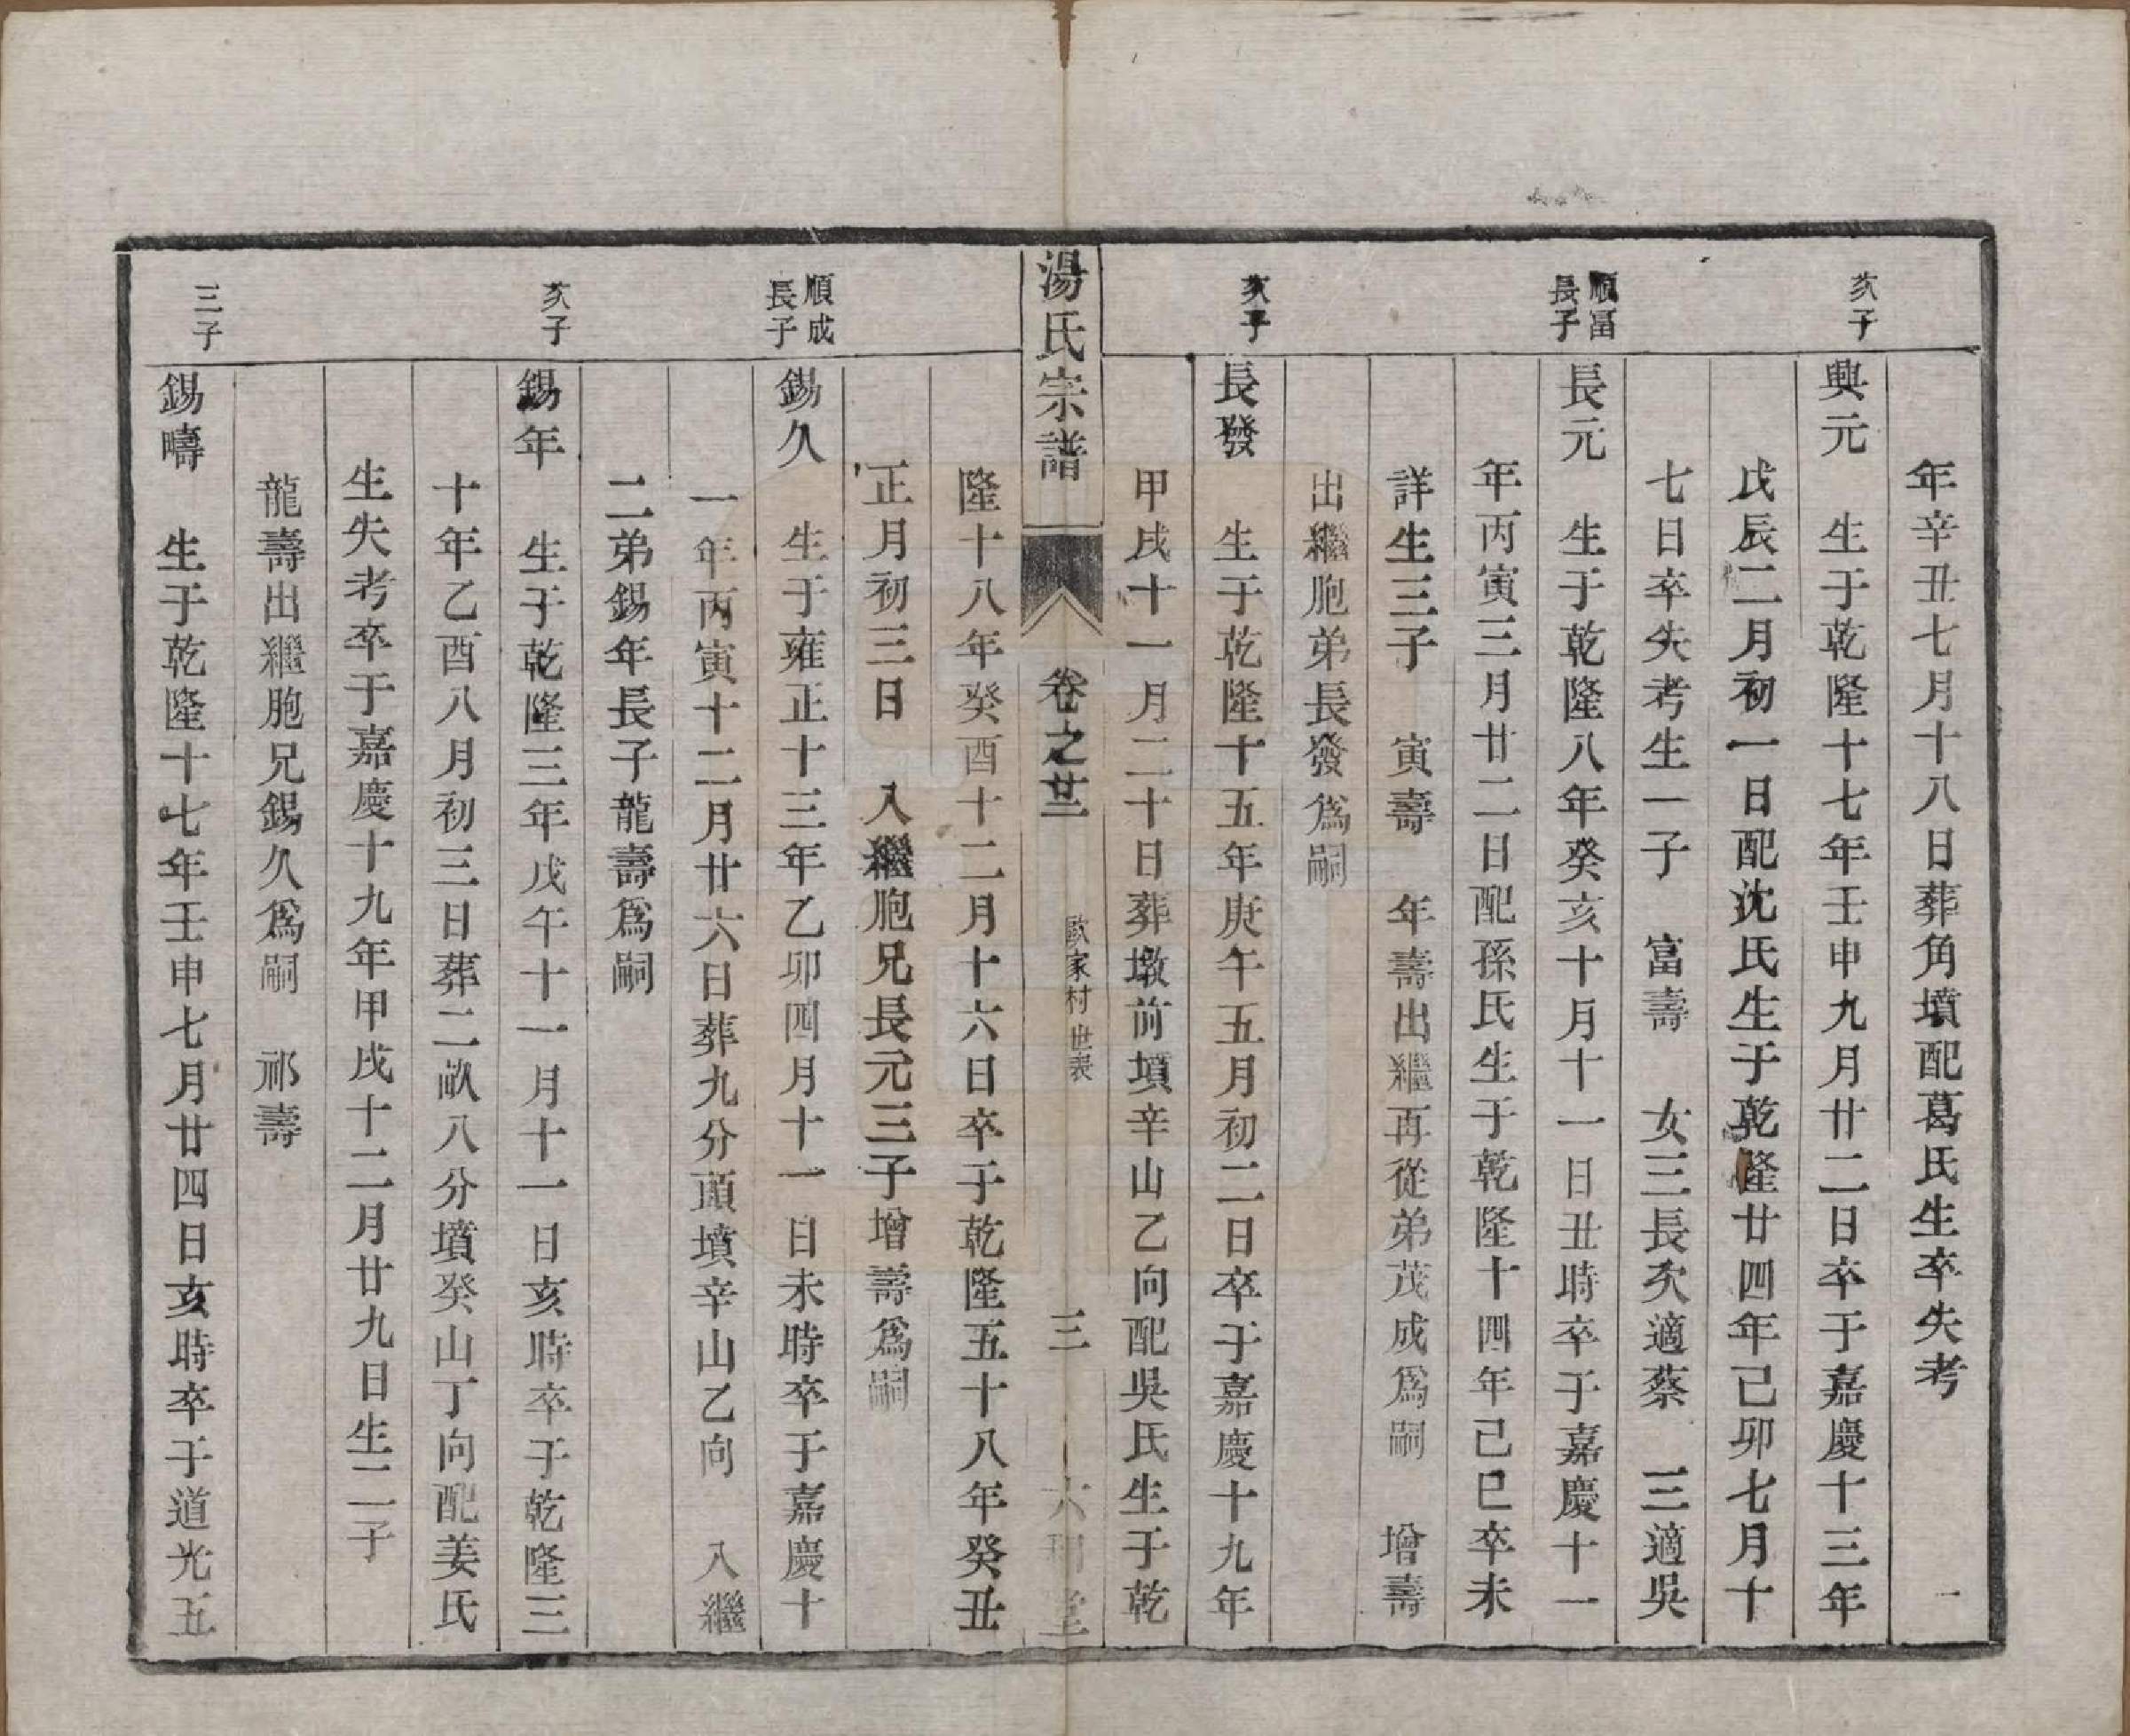 年辛丑七月十八日葬角墳配葛氏生卒失考
次子
興元 生于乾隆十七年壬申九月廿二日卒于嘉慶十三年
戊辰二月初一日配沈氏生于乾隆廿四年己卯七月十
七日卒失考生一子 富壽 女三長次適蔡 三適吳
順富長子
長元 生于乾隆八年癸亥十月十一日丑時卒于嘉慶十一
年丙寅三月廿二日配孫氏生于乾隆十四年己巳卒未
詳生三子 寅壽 年壽出繼再從弟茂成爲嗣 增壽
出繼胞弟長發爲嗣
次子
長發 生于乾隆十五年庚午五月初二日卒于嘉慶十九年
甲戌十一月二十日葬墩前墳辛山乙向配吳氏生于乾
湯氏宗譜 卷之廿三 家村世表 三
隆十八年癸酉十二月十六日卒于乾隆五十八年癸丑
正月初三日 入繼胞兄長元三子增壽爲嗣
順成長子
錫久 生于雍正十三年乙卯四月十一日未時卒于嘉慶十
一年丙寅十二月廿六日葬九分頭墳辛山乙向 入繼
二弟錫年長子龍壽爲嗣
次子
錫年 生于乾隆三年戊午十一月十一日亥時卒于乾隆三
十年乙酉八月初三日葬二畝八分墳癸山丁向配姜氏
生失考卒于嘉慶十九年甲戌十二月廿九日生二子
龍壽出繼胞兄錫久爲嗣 祁壽
三子
錫疇 生于乾隆十七年壬申七月廿四日亥時卒于道光五